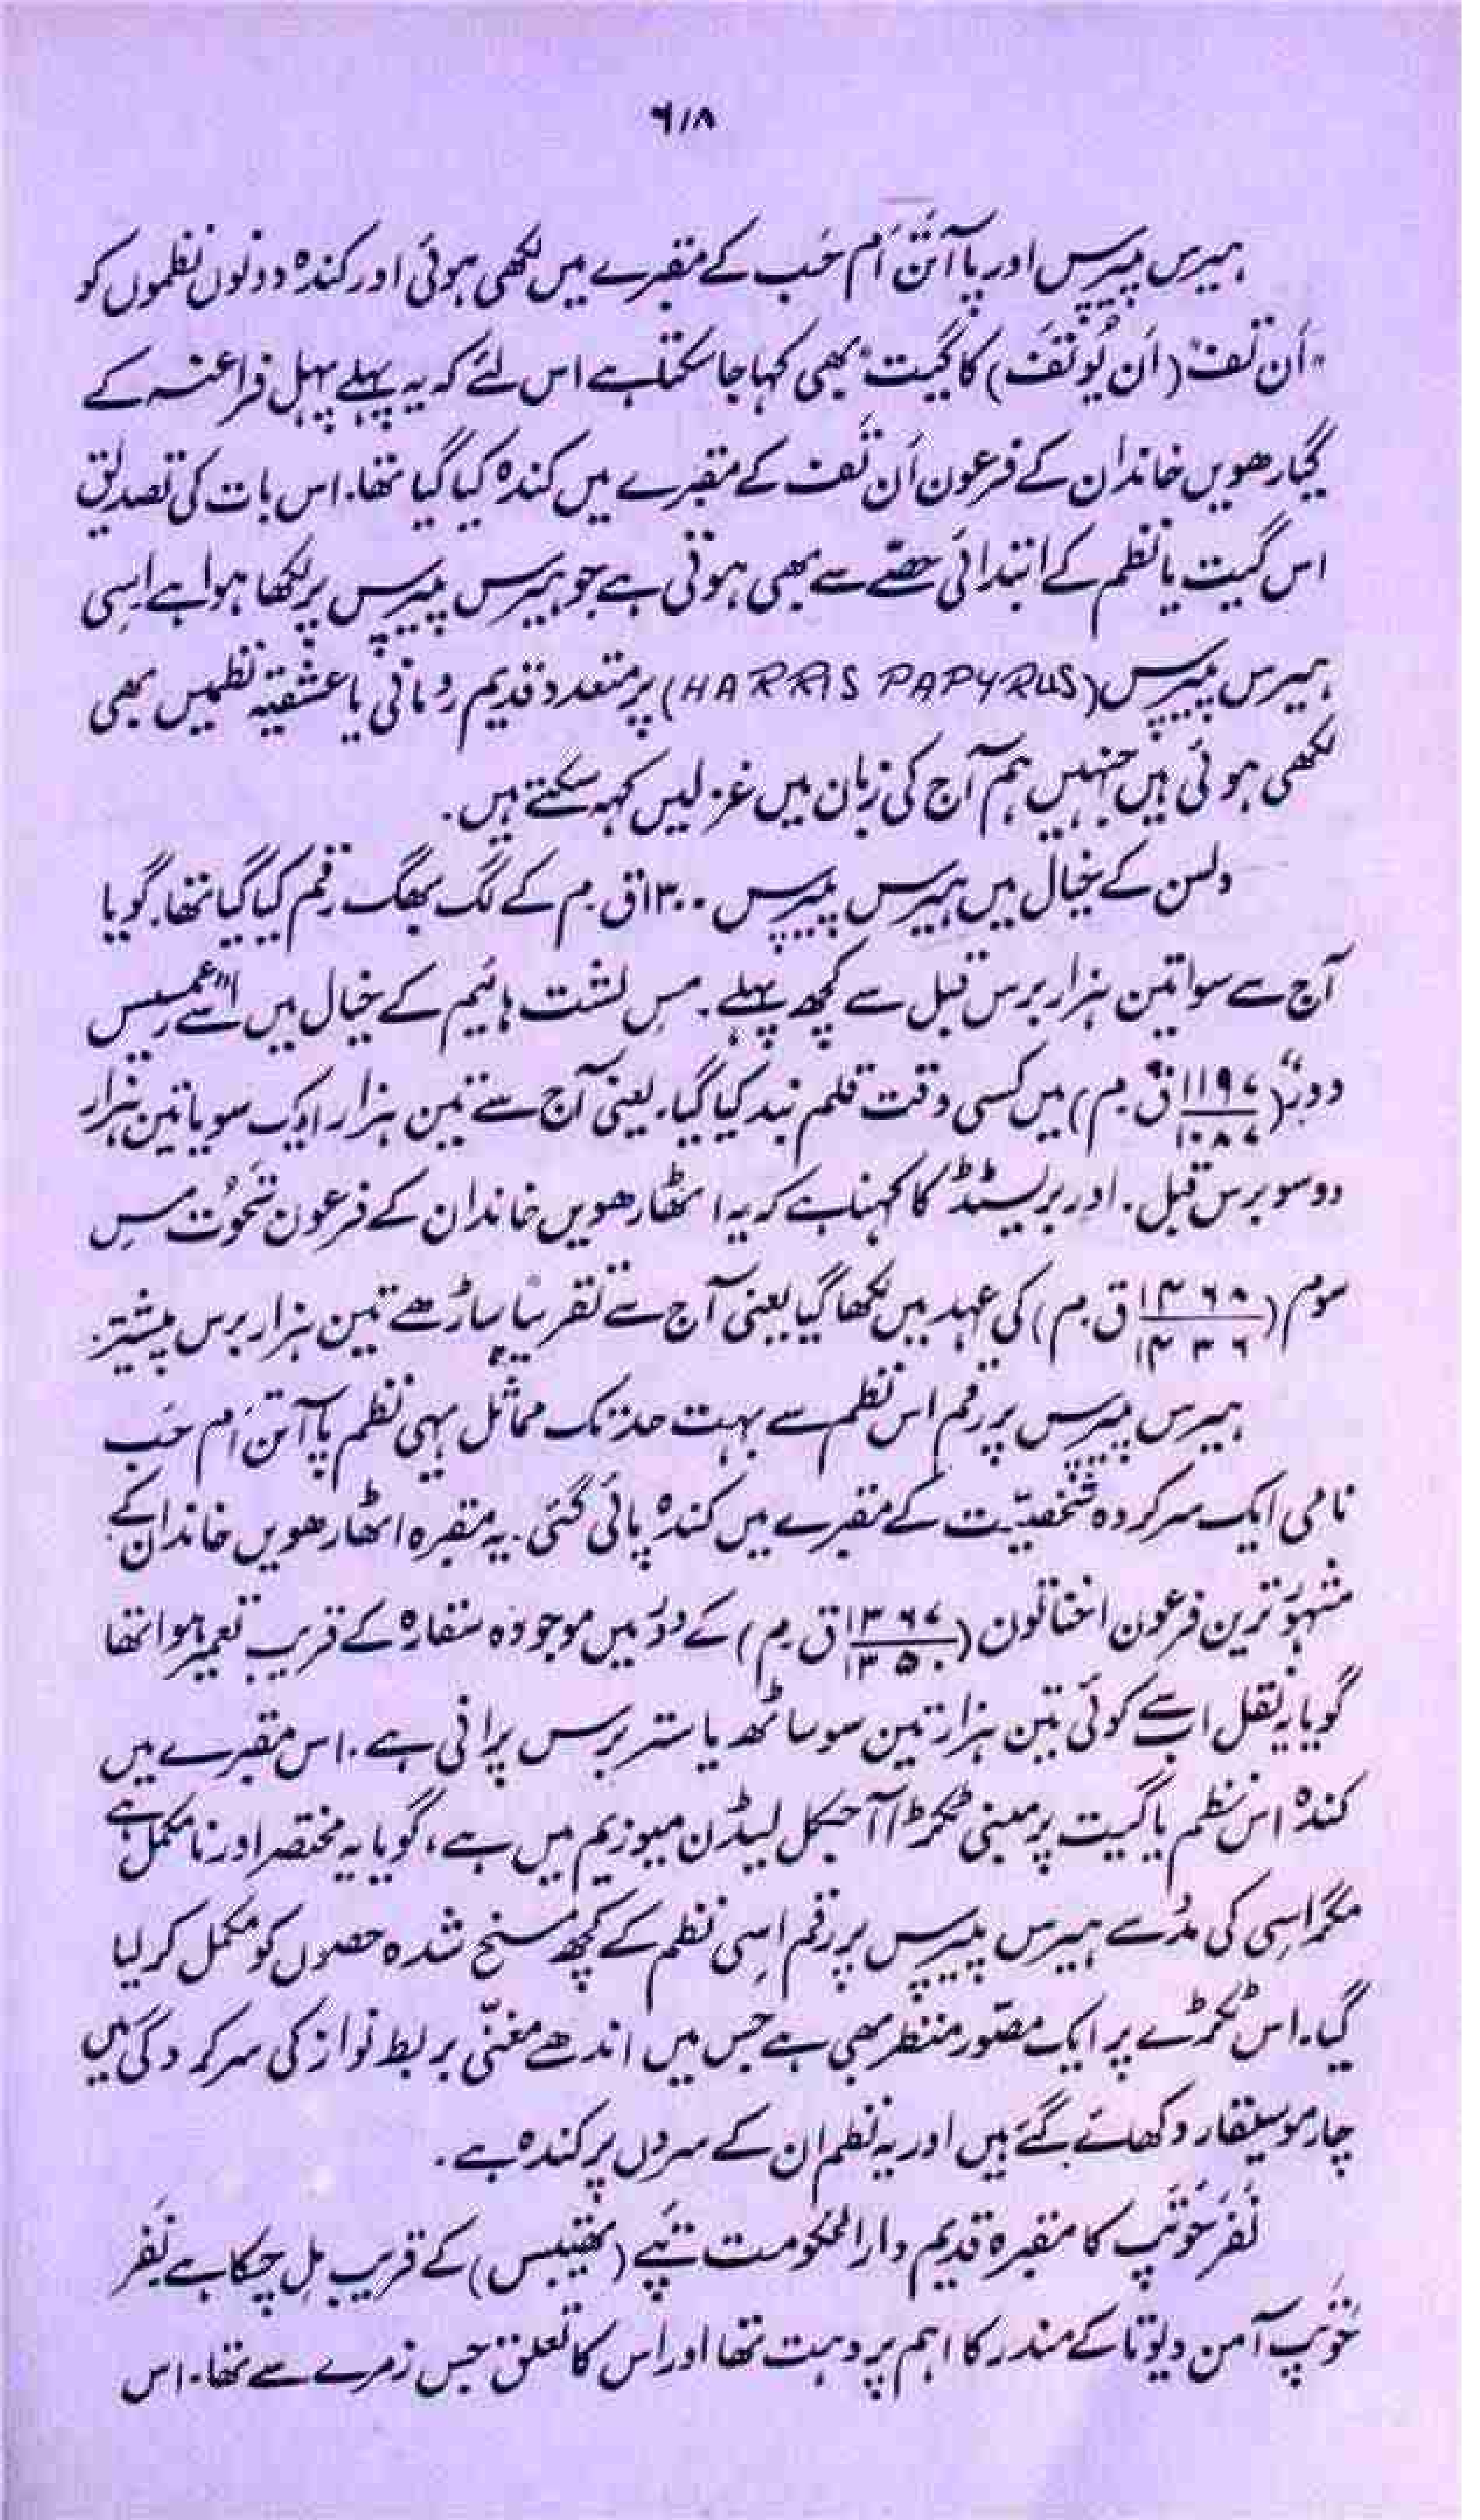 ۶۱۸
ہیرس پیپرس اور پاآتن اَم حَب کے مقبرے میں لکھی ہوئی اور کندہ دونوں نظموں کو
"اَن تَف" (اَن یُوتَف) کا گیت" بھی کہا جا سکتا ہے اس لئے کہ یہ پہلے پہل فراعنہ کے
گیارھویں خاندان کے فرعون اَن تَف کے مقبرے میں کندہ کیا گیا تھا۔ اس بات کی تصدیق
اس گیت یا نظم کے ابتدائی حصّے سے بھی ہوتی ہے جو ہیرس پیپرس پر لکھا ہوا ہے اسی
ہیرس پیپرس (HARRIS PAPYRUS) پر متعدد قدیم رومانی یا عشقیہ نظمیں بھی
لکھی ہوئی ہیں جنہیں ہم آج کی زبان میں غزلیں کہہ سکتے ہیں۔
ولسن کے خیال میں ہیرس پیپرس ۱۳۰۰ ق۔م کے لگ بھگ رقم کیا گیا تھا۔ گویا
آج سے سوا تین ہزار برس قبل سے کچھ پہلے۔ مس لشت ہائیم کے خیال میں اسے "رعمسیس
دور" (۱۱۹۷/۱۰۸۷ ق۔م) میں کسی وقت قلم بند کیا گیا۔ یعنی آج سے تین ہزار ایک سو یا تین ہزار
دو سو برس قبل۔ اور بریسٹڈ کا کہنا ہے کہ یہ اٹھارھویں خاندان کے فرعون تحُوت مس
سوم (۱۴۶۸/۱۴۳۶ ق۔م) کی عہد میں لکھا گیا یعنی آج سے تقریباً ساڑھے تین ہزار برس پیشتر۔
ہیرس پیپرس پر رقم اس نظم سے بہت حد تک مماثل یہی نظم پاآتن اَم حَب
نامی ایک سرکردہ شخصیّت کے مقبرے میں کندہ پائی گئی۔ یہ مقبرہ اٹھارھویں خاندان کے
مشہور ترین فرعون اخناتون (۱۳۶۷/۱۳۵۰ ق۔م) کے دور میں موجودہ سقارہ کے قریب تعمیر ہوا تھا
گویا یہ نقل اب سے کوئی تین ہزار تین سو ساٹھ یا ستر برس پرانی ہے۔ اس مقبرے میں
کندہ اس نظم یا گیت پر مبنی ٹکڑا آجکل لیڈن میوزیم میں ہے، گویا یہ مختصر اور نامکمل ہے
مگر اسی کی مدد سے ہیرس پیپرس پر رقم اسی نظم کے کچھ مسخ شدہ حصوں کو مکمل کر لیا
گیا۔ اس ٹکڑے پر ایک مصّور منظر بھی ہے جس میں اندھے مغنّی بربط نواز کی سرکردگی میں
چار موسیقار دکھائے گئے ہیں اور یہ نظم ان کے سروں پر کندہ ہے۔
نَفَر حَوتَپ کا مقبرہ قدیم دارالحکومت تپے (تھیبس) کے قریب مل چکا ہے نَفَر
حَوتَپ آمن دیوتا کے مندر کا اہم پروہت تھا اور اس کا تعلق جس زمرے سے تھا۔ اس